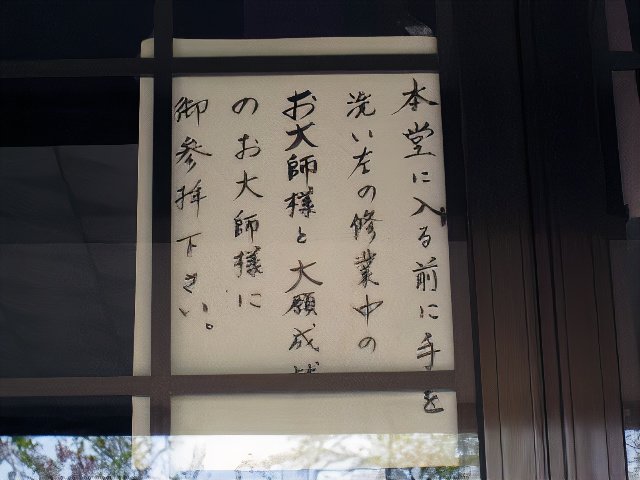 本堂に入る前に手を
洗い左の修業中の
お大師様と大願成
のお大師様に
御参拝下さい。